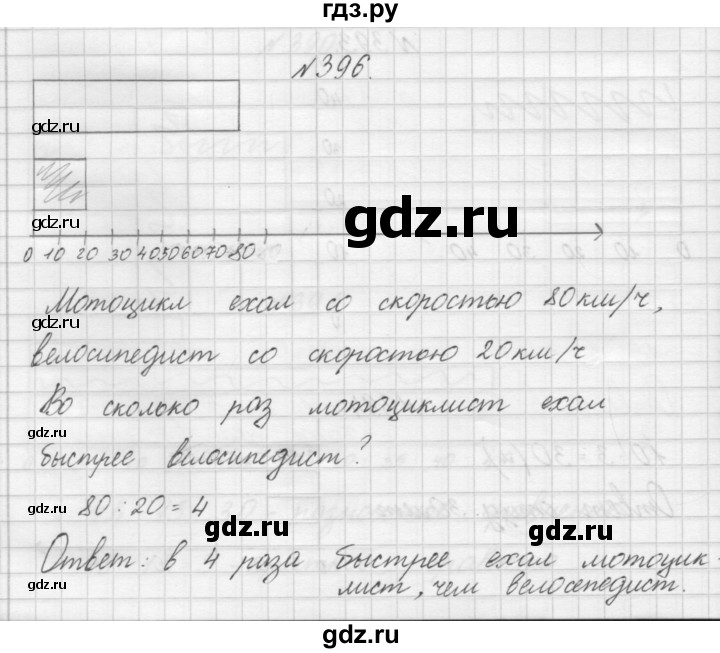 гдз.ру
№396.
gdz.ru
gdz.ru
gdz.ru
0 10 20 30 40 50 60 70 80
Мотоцикл ехал со скоростью 80 км/ч,
gdz.ru
велосипедист со скоростью 20 км/ч
Во сколько раз мотоциклист ехал
gdz.ru
быстрее велосипедист?
80 : 20 = 4
gdz.ru
gdz.ru
gdz.ru
Ответ: в 4 раза быстрее ехал мотоцик-
лист, чем велосепедист.
gdz.ru
gdz.ru